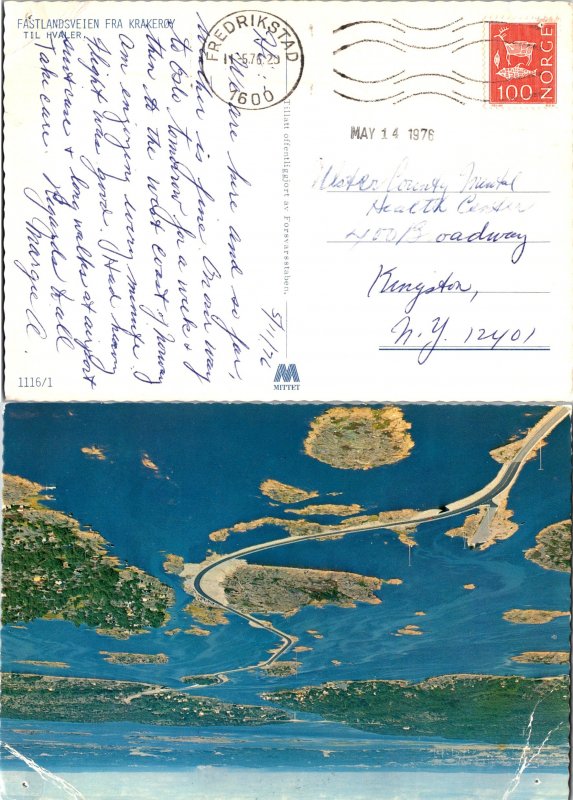 FASTLANDSVEIEN FRA KRAKERØY
TIL HVALER
FREDRIKSTAD
1600
NORGE
100
MAY 14 1976
5/11/76
Hi,
We are here and so far,
weather is fine. On our way
to Oslo tomorrow for a week &
then to the west coast of Norway
am enjoying every minute.
Flight was good. (Had heavy
suitcase & long walks at airport
Take care. Regards to all
Margie A.
Tillatt offentliggjort av Forsvarsstaben.
Ulster County Mental
Health Center
400 Broadway
Kingston,
N.Y. 12401
1116/1
MITTET